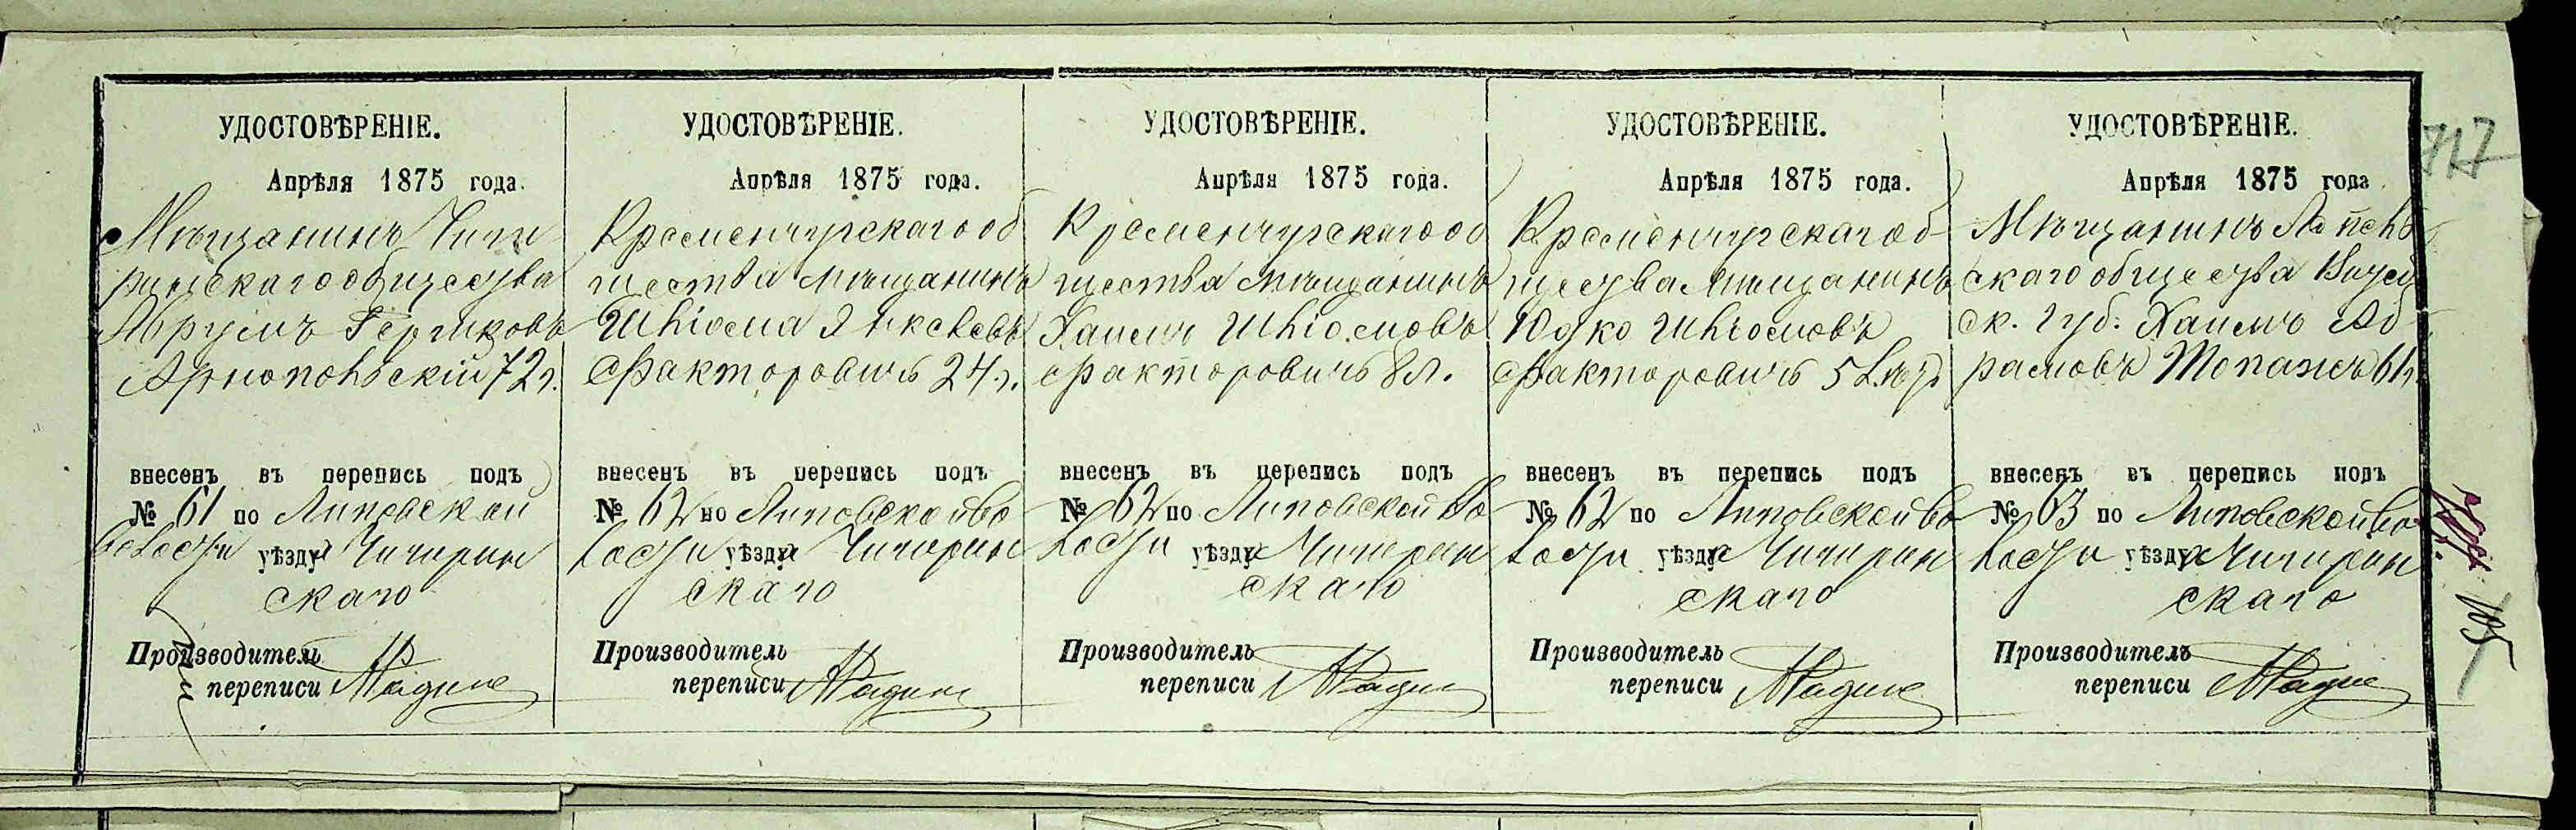 УДОСТОВѢРЕНІЕ.
Апрѣля 1875 года.
Мѣщанинъ Чиги
ринскаго общества
Абрумъ Гершковъ
72 л.
внесенъ въ перепись подъ
№ 61 по Липовской
волости уѣзда Чигирин
скаго
Производитель
переписи
УДОСТОВѢРЕНІЕ.
Апрѣля 1875 года.
Кременчугскаго об
щества мѣщанинъ
Шліома
Факторовичъ 24 л.
внесенъ въ перепись подъ
№ 62 по Липовской во
лости уѣзда Чигирин
скаго
Производитель
переписи
УДОСТОВѢРЕНІЕ.
Апрѣля 1875 года.
Кременчугскаго об
щества мѣщанинъ
Хаимъ Шліомовъ
Факторовичъ 8 л.
внесенъ въ перепись подъ
№ 62 по Липовской во
лости уѣзда Чигирин
скаго
Производитель
переписи
УДОСТОВѢРЕНІЕ.
Апрѣля 1875 года.
Кременчугскаго об
щества мѣщанинъ
Юдко Шліомовъ
Факторовичъ 5 лѣтъ
внесенъ въ перепись подъ
№ 62 по Липовской во
лости уѣзда Чигирин
скаго
Производитель
переписи
УДОСТОВѢРЕНІЕ.
Апрѣля 1875 года.
Мѣщанинъ
скаго общества
ск. губ. Хаимъ Аб
рамовъ 61 л.
внесенъ въ перепись подъ
№ 63 по Липовской во
лости уѣзда Чигирин
скаго
Производитель
переписи
717
105